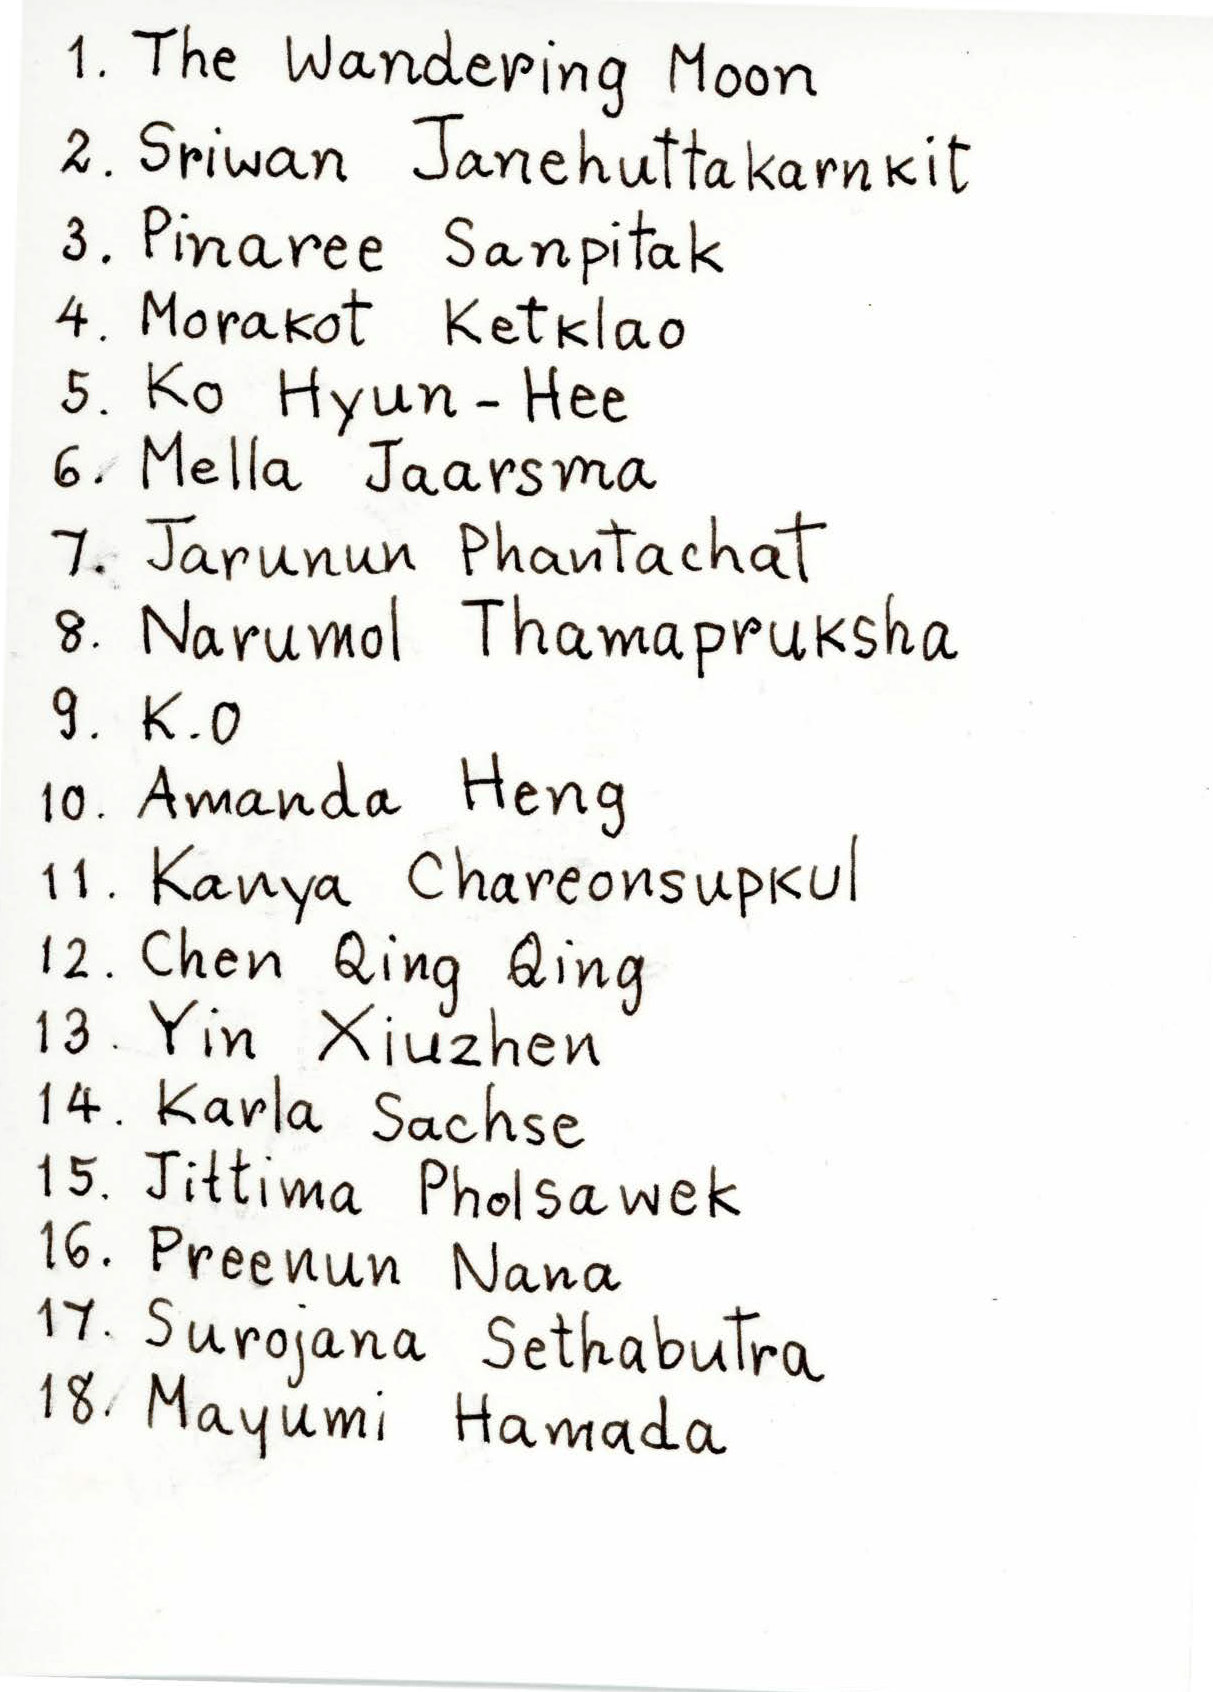 1. The Wandering Moon
2. Sriwan Janehuttakarnkit
3. Pinaree Sanpitak
4. Morakot Ketklao
5. Ko Hyun-Hee
6. Mella Jaarsma
7. Jarunun Phantachat
8. Narumol Thamapruksha
9. K.O
10. Amanda Heng
11. Kanya Chareonsupkul
12. Chen Qing Qing
13. Yin Xiuzhen
14. Karla Sachse
15. Jittima Pholsawek
16. Preenun Nana
17. Surojana Sethabutra
18. Mayumi Hamada